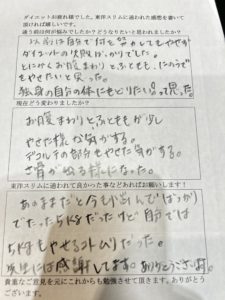 ダイエットお疲れ様でした。東洋スリムに通われた感想を書いて
頂ければ嬉しいです。
通う前は何が悩みでしたか？どうなりたいと思われましたか？
以前は自分で何を努力してもやせず
ダイエットの失敗ばかりでした。
とにかくお腹まわりとふともも、にのうでを
やせたいと思った。
独身の自分の体にもどりたいって思った。
現在どう変わりましたか？
お腹まわりとふとももが少し
やせた様な気がする。
デコルテの部分もやせた気がする。
さ骨が出る様になった。
東洋スリムに通われて良かった事などあればお願いします！
あのままだと今も凹んでばっかり
でたった5kgだったけど自分では
5kgもやせるコトびりだった。
先生には感謝してます。ありがとうございます。
貴重なご意見を元にこれからも勉強させて頂きます。ありがとう
ございます。